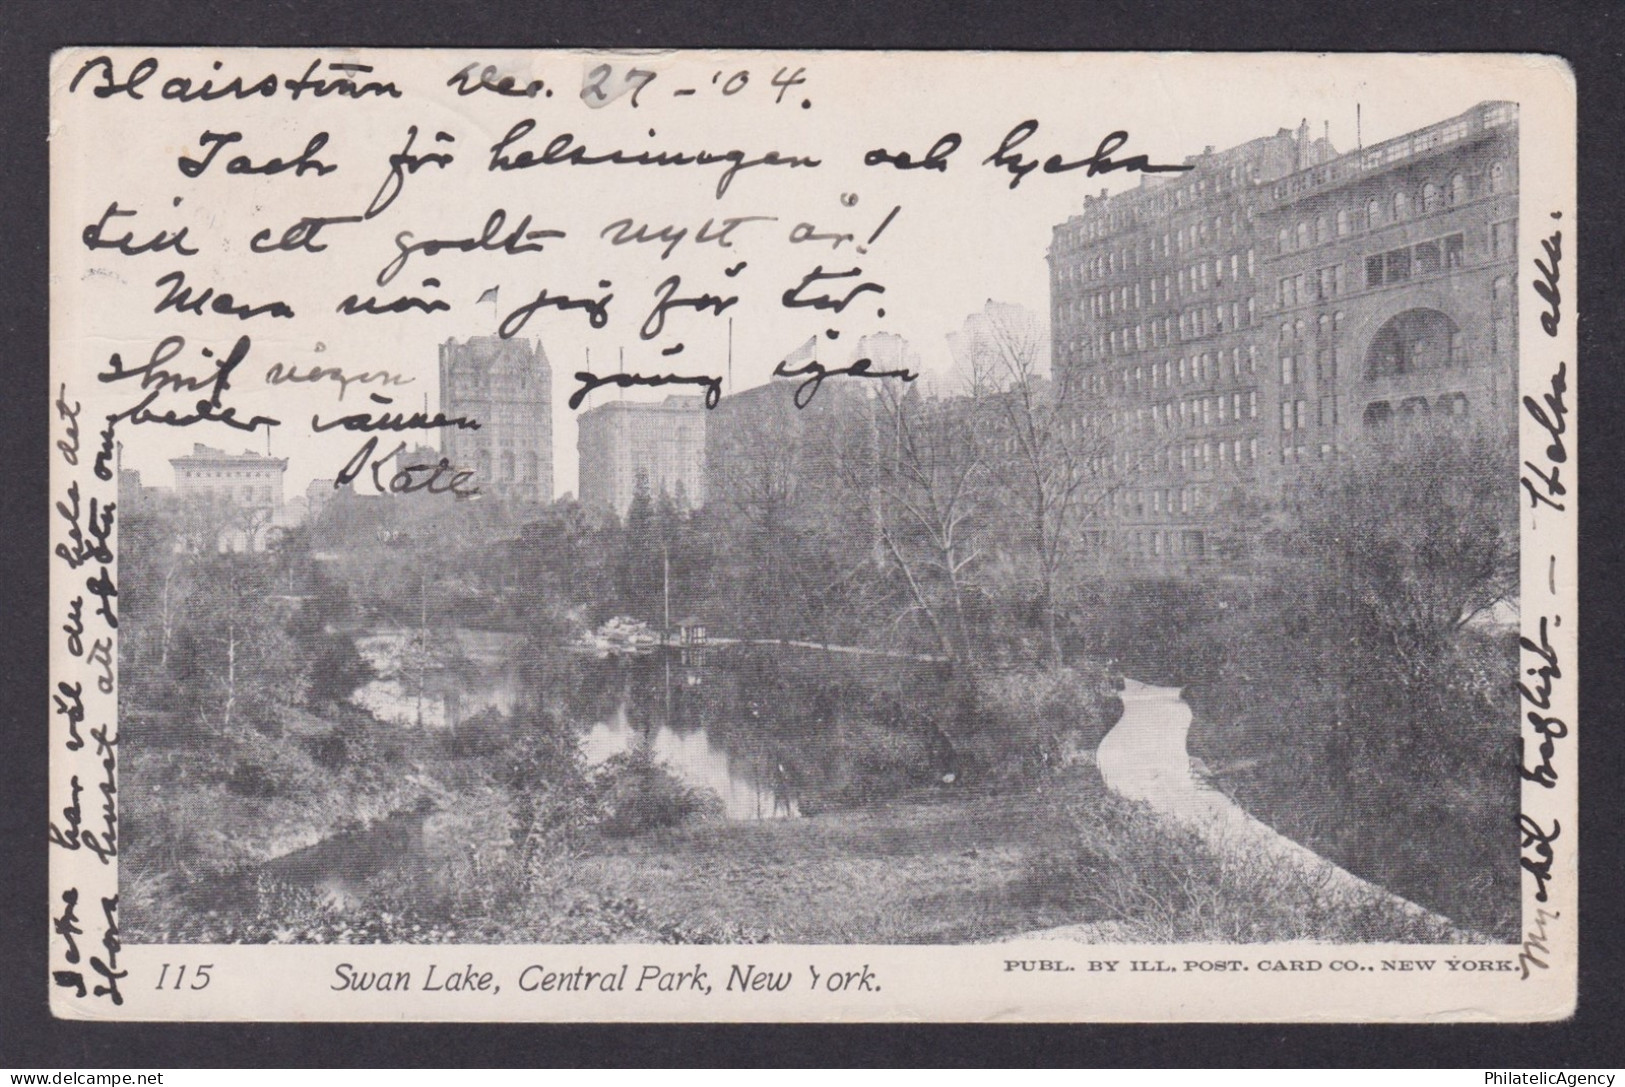 Blairstown Dec. 27-'04.
Tack för helsinugen och lycka
till ett godt nytt år!
Mera när jag får tid.
skrif någon gång igen
beder vännen
Kate
Detta har väl du hela det
stora huset att sköta om
Mycket brefligt. — Helsa alla.
115 Swan Lake, Central Park, New York.
PUBL. BY ILL. POST. CARD CO., NEW YORK.
PhilatelicAgency